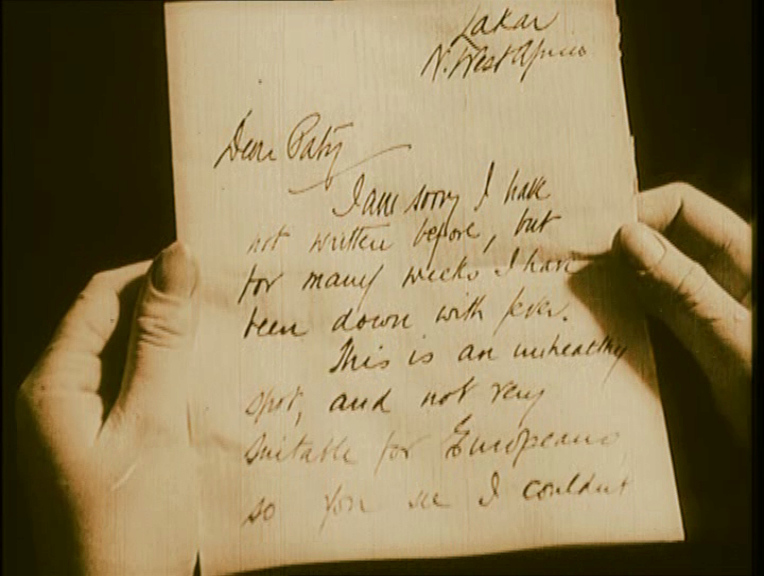 Dakar
N. West Africa
Dear Patsy
I am sorry I have
not written before, but
for many weeks I have
been down with fever.
This is an unhealthy
spot, and not very
suitable for Europeans,
so you see I couldnt